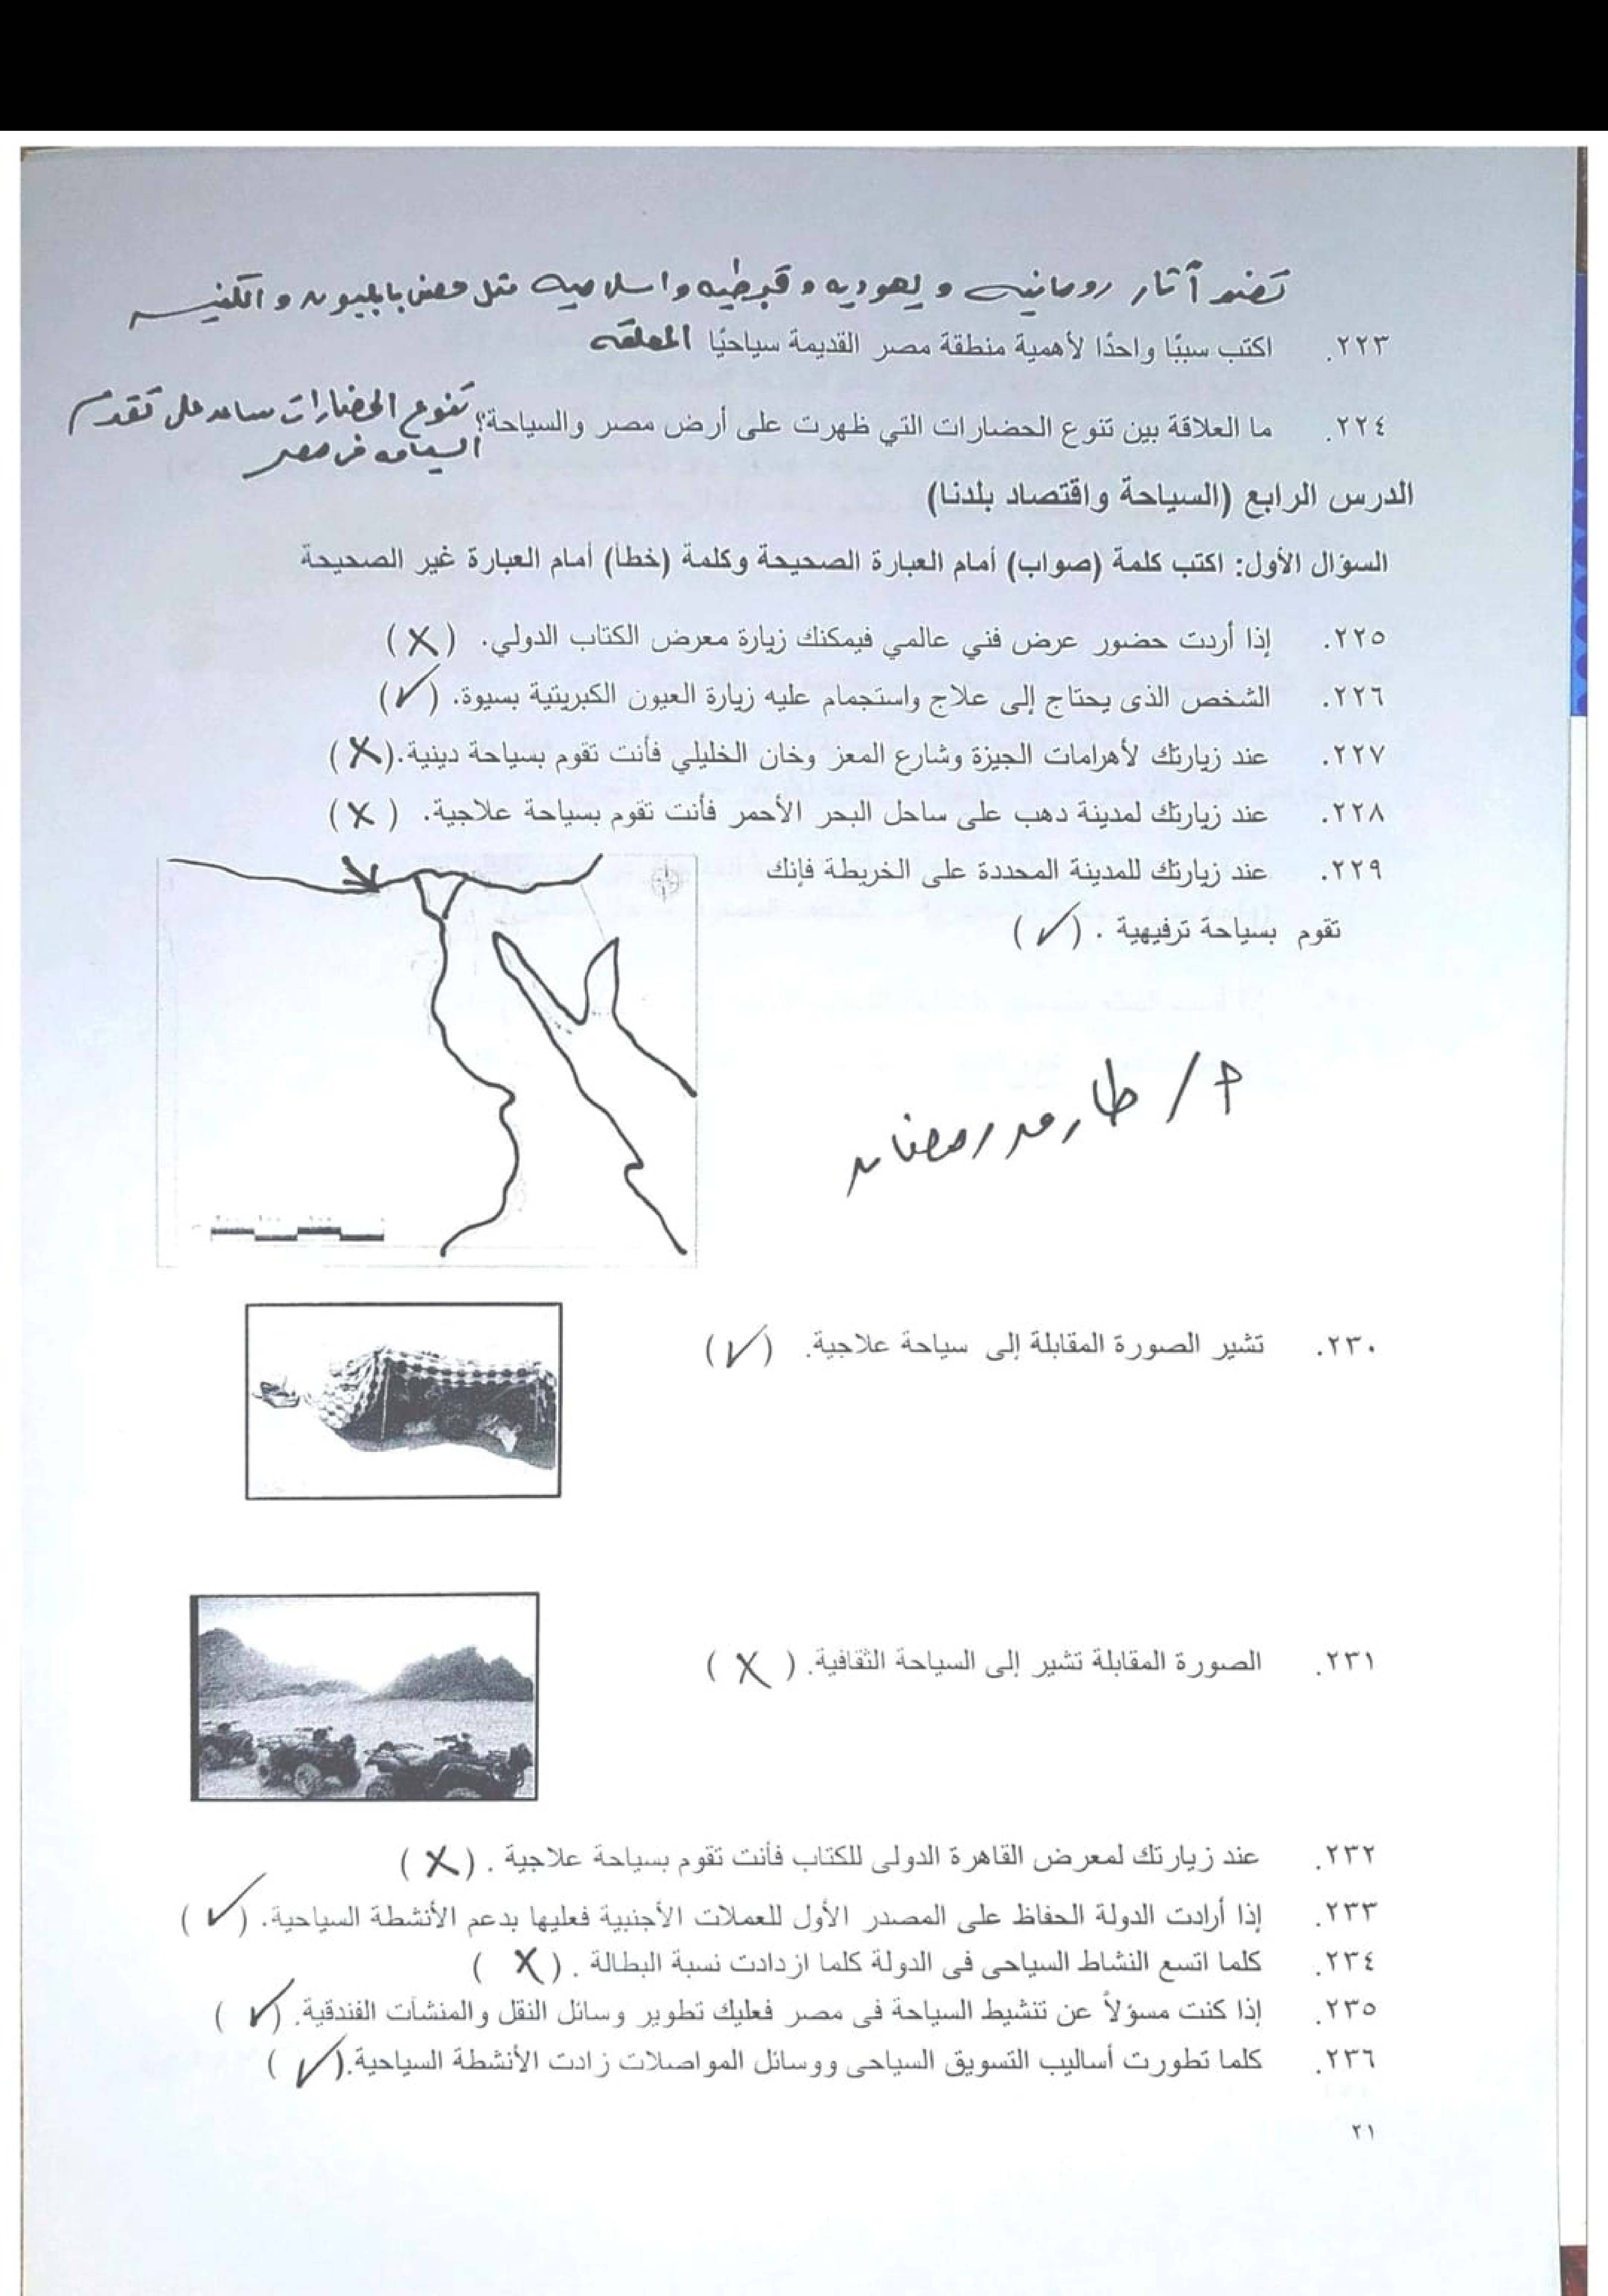 تضم آثار رومانيه و يهوديه و قبطيه واسلاميه مثل حصن بابليون و الكنيسه
٢٢٣. اكتب سببًا واحدًا لأهمية منطقة مصر القديمة سياحيًا المعلقه
٢٢٤. ما العلاقة بين تنوع الحضارات التي ظهرت على أرض مصر والسياحة؟ تنوع الحضارات ساعد على تقدم
السياحه فى مصر
الدرس الرابع (السياحة واقتصاد بلدنا)
السؤال الأول: اكتب كلمة (صواب) أمام العبارة الصحيحة وكلمة (خطأ) أمام العبارة غير الصحيحة
٢٢٥. إذا أردت حضور عرض فني عالمي فيمكنك زيارة معرض الكتاب الدولي. (X)
٢٢٦. الشخص الذى يحتاج إلى علاج واستجمام عليه زيارة العيون الكبريتية بسيوة. (✓)
٢٢٧. عند زيارتك لأهرامات الجيزة وشارع المعز وخان الخليلي فأنت تقوم بسياحة دينية.(X)
٢٢٨. عند زيارتك لمدينة دهب على ساحل البحر الأحمر فأنت تقوم بسياحة علاجية. (X)
٢٢٩. عند زيارتك للمدينة المحددة على الخريطة فإنك
تقوم بسياحة ترفيهية . (✓)
أ / طارق رمضان
٢٣٠. تشير الصورة المقابلة إلى سياحة علاجية. (✓)
٢٣١. الصورة المقابلة تشير إلى السياحة الثقافية. (X)
٢٣٢. عند زيارتك لمعرض القاهرة الدولى للكتاب فأنت تقوم بسياحة علاجية . (X)
٢٣٣. إذا أرادت الدولة الحفاظ على المصدر الأول للعملات الأجنبية فعليها بدعم الأنشطة السياحية. (✓)
٢٣٤. كلما اتسع النشاط السياحى فى الدولة كلما ازدادت نسبة البطالة . (X)
٢٣٥. إذا كنت مسؤلاً عن تنشيط السياحة فى مصر فعليك تطوير وسائل النقل والمنشآت الفندقية. (✓)
٢٣٦. كلما تطورت أساليب التسويق السياحى ووسائل المواصلات زادت الأنشطة السياحية.(✓)
٢١